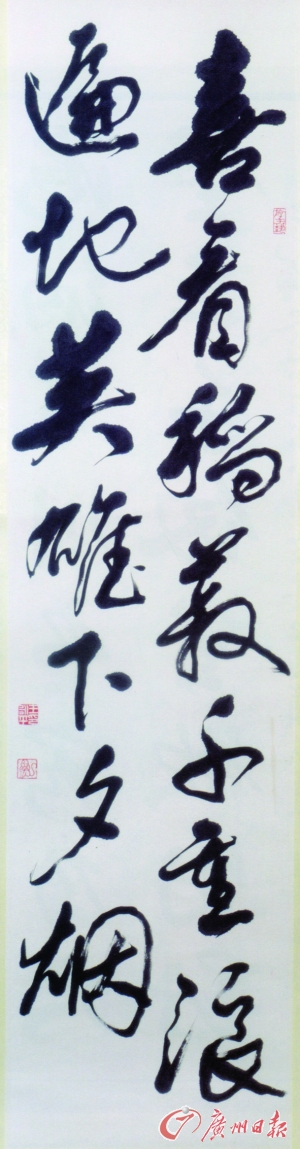 喜看稻菽千重浪
遍地英雄下夕烟
廣州日報